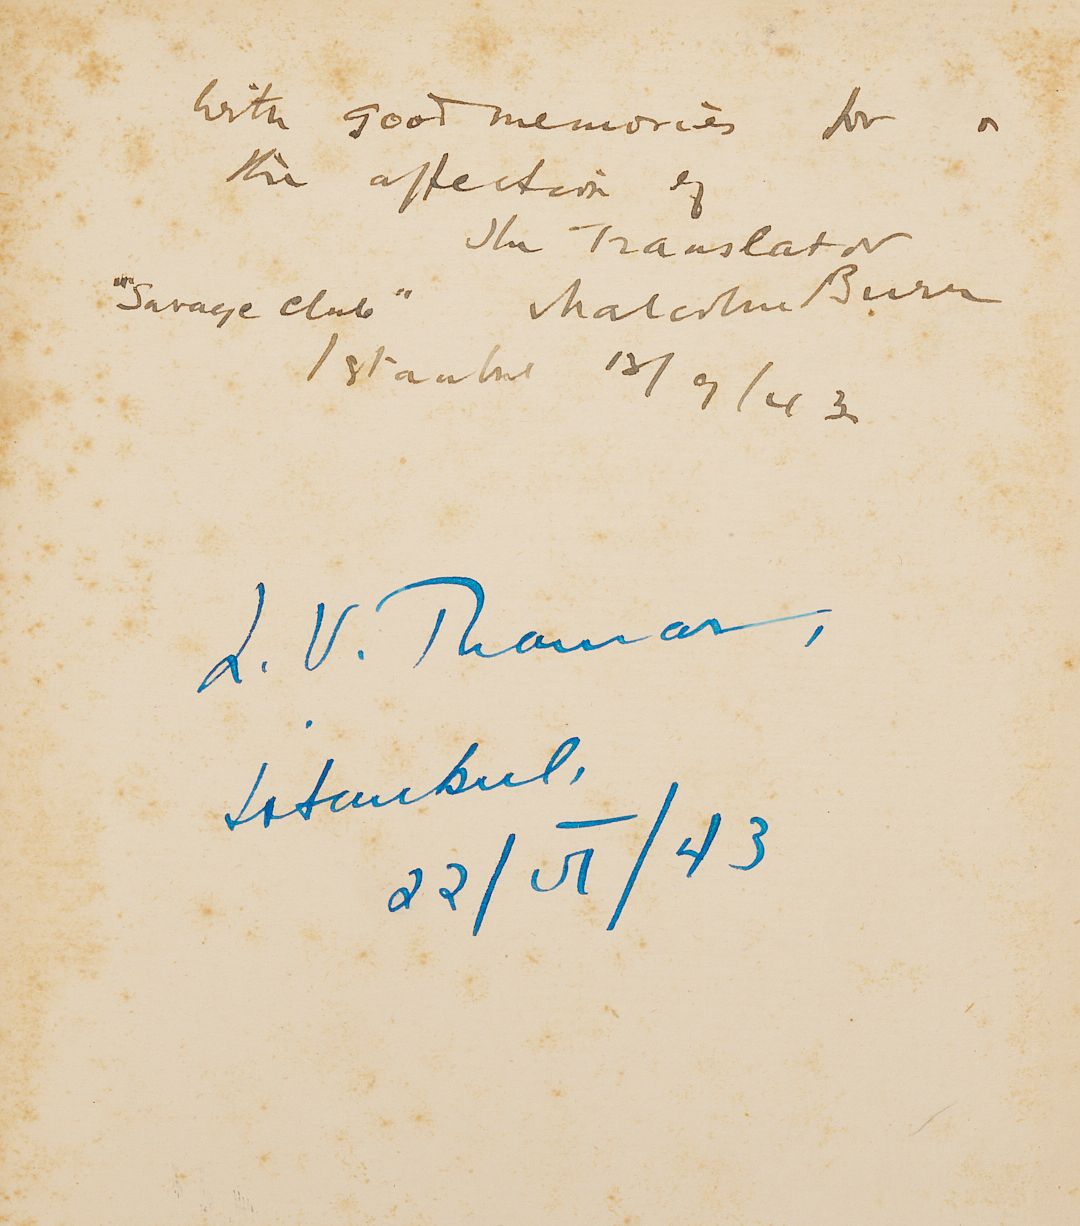 with good memories for
the affection of
the Translator
"Savage Club" Malcolm Burr
Istanbul 13/9/43
L. V. Thomas,
Istanbul,
22/VI/43